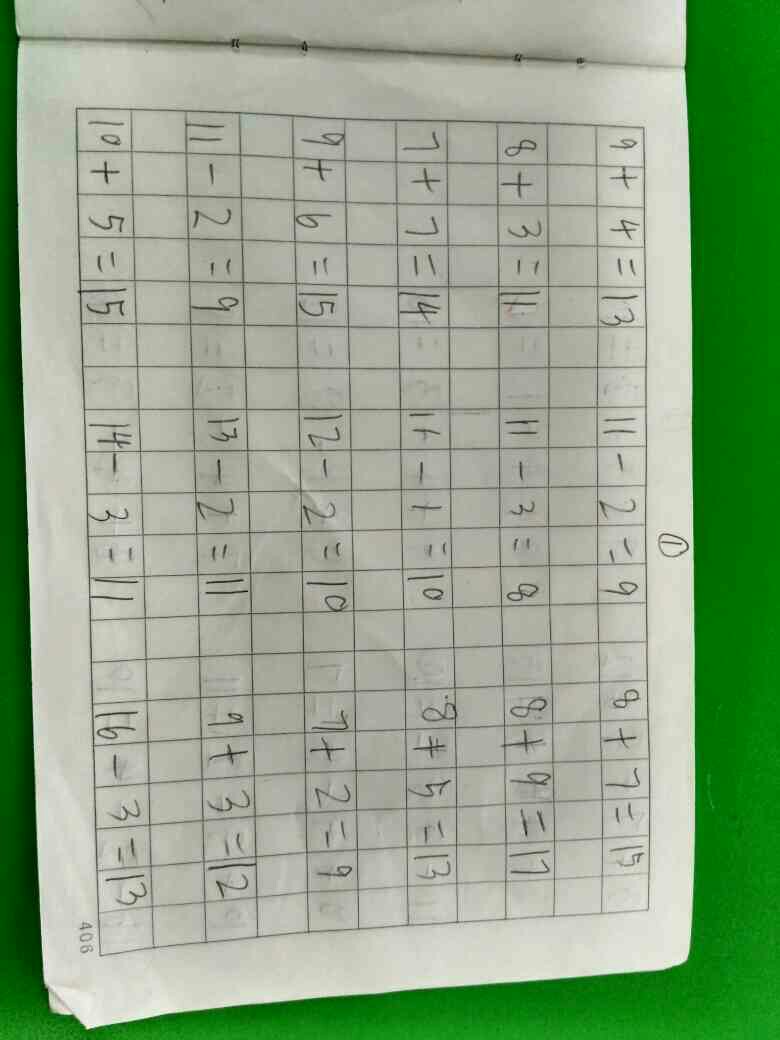 ①
9+4=13 11-2=9 8+7=15
8+3=11 11-3=8 8+9=17
7+7=14 11-1=10 8+5=13
9+6=15 12-2=10 7+2=9
11-2=9 13-2=11 9+3=12
10+5=15 14-3=11 16-3=13
406